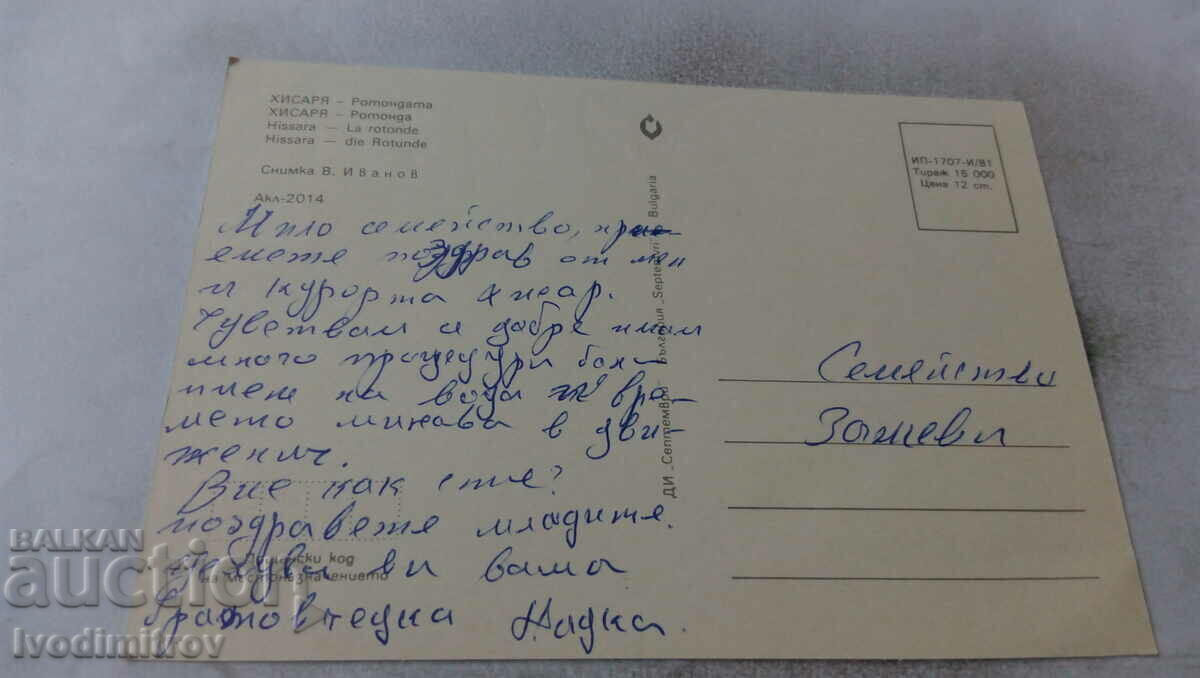 ХИСАРЯ – Ротондата
ХИСАРЯ – Ротонда
Hissara — La rotonde
Hissara — die Rotunde
Снимка В. Иванов
Акл-2014
ИП-1707-И/81
Тираж 15 000
Цена 12 ст.
Мило семейство, прие
емете поздрав от мен
и курорта Хисар.
Чувствам се добре имам
много процедури
пием на вода и вре-
мето минава в дви-
жение.
Вие как сте?
поздравете младите.
ви вама
Надка.
ДИ „Септември" България „Septemvri" Bulgaria
Семейство
Пощенски код
на местоназначението
BALKAN
auction
Ivodimitrov